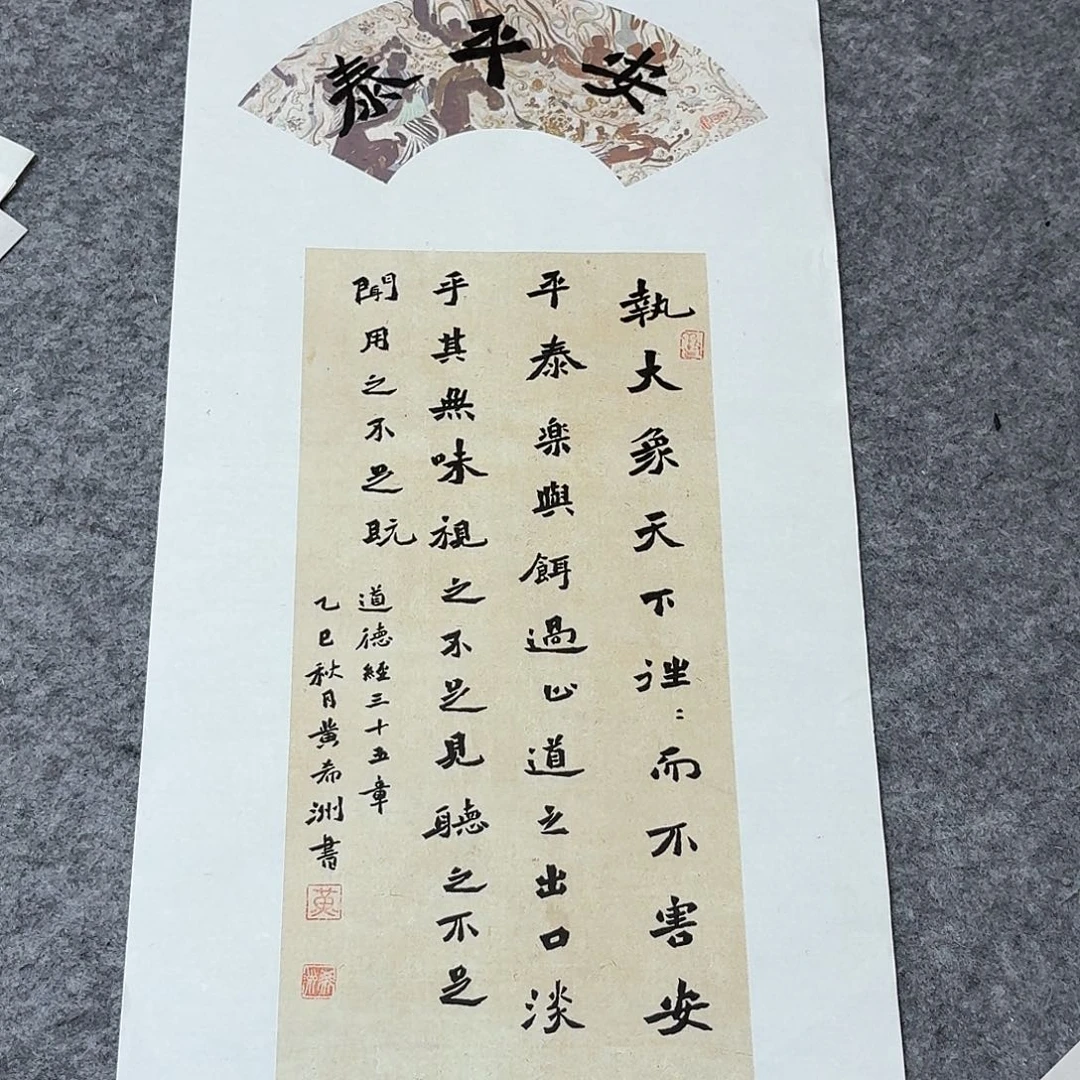 安平泰
執大象天下往:而不害安
平泰楽與餌過止道之出口淡
乎其無味視之不足見聽之不足
聞用之不足既 道德經三十五章
乙巳秋月黄希洲書
黄